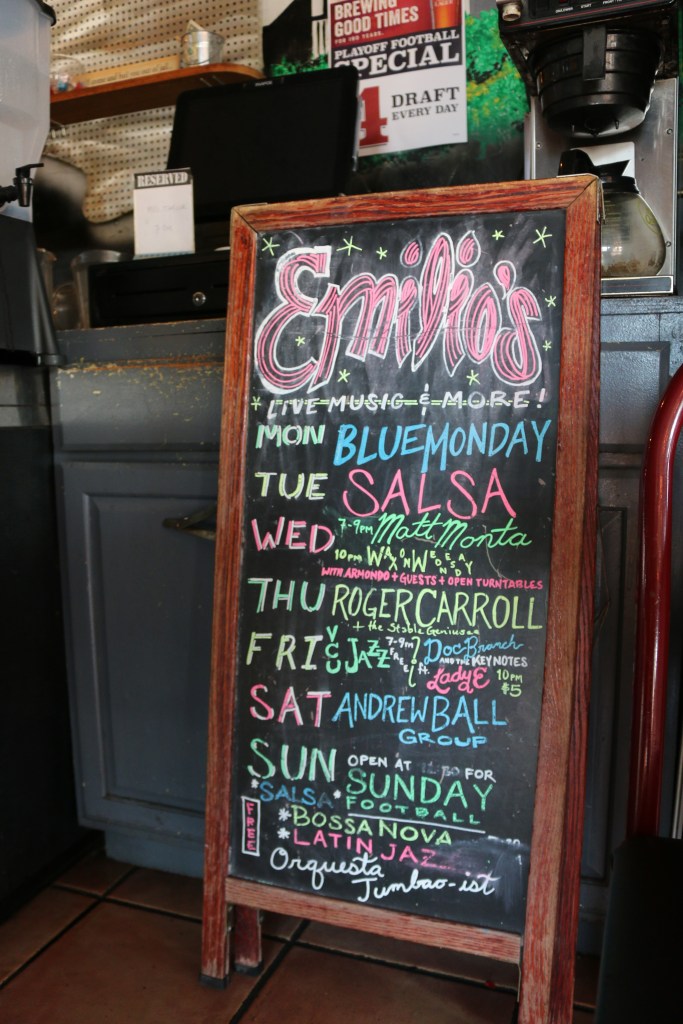 BREWING
GOOD TIMES
FOR 100 YEARS.
PLAYOFF FOOTBALL
SPECIAL
4 DRAFT
EVERY DAY
RESERVED
Emilio's
LIVE MUSIC & MORE!
MON BLUE MONDAY
TUE SALSA
WED 7-9PM Matt Monta
10PM WAX ON WEDNESDAY
WITH ARMONDO + GUESTS + OPEN TURNTABLES
THU ROGER CARROLL
+ the Stable Geniuses
FRI VCU JAZZ 7-9PM FREE
ft. Doc Branch
AND THE KEYNOTES
Lady E 10PM
$5
SAT ANDREW BALL
GROUP
SUN OPEN AT FOR
SUNDAY
FOOTBALL
FREE
*SALSA*
*BOSSA NOVA
*LATIN JAZ
Orquesta
Tumbao-ist